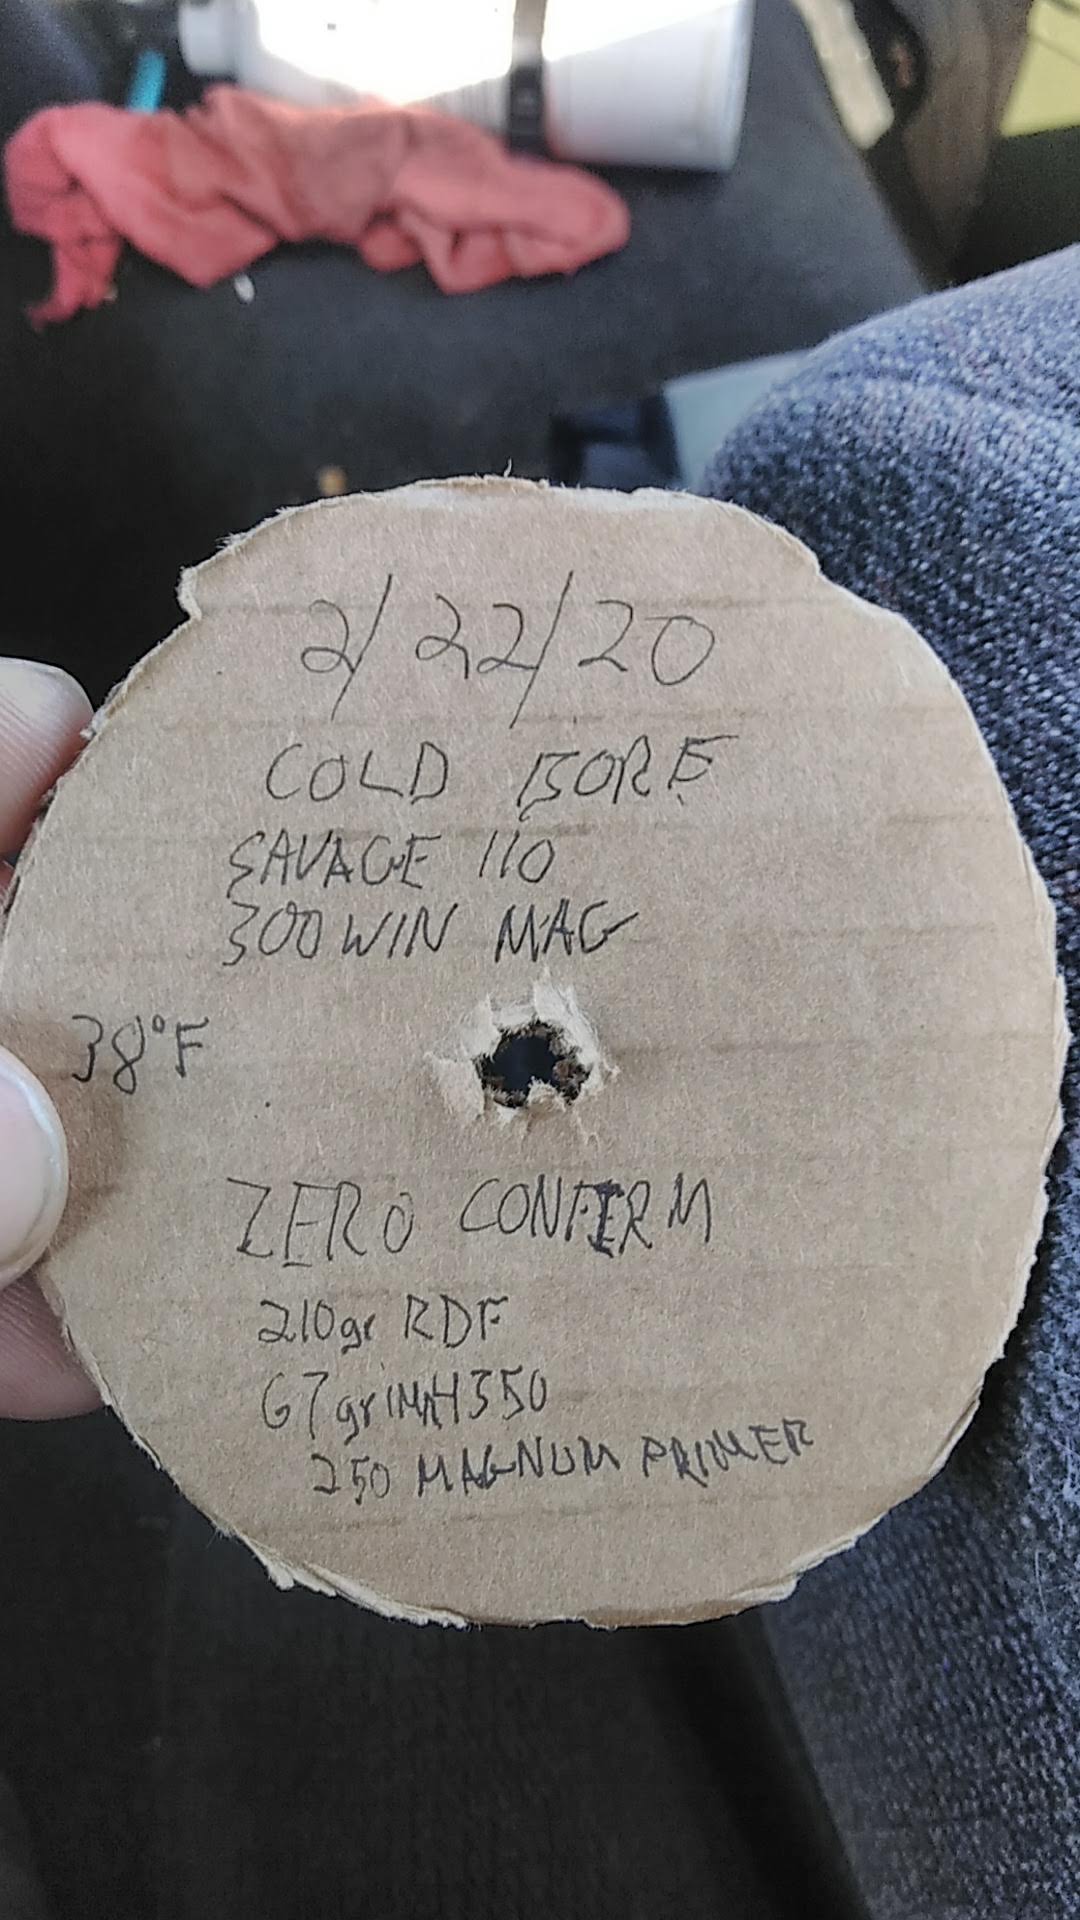 2/22/20
COLD BORE
SAVAGE 110
300 WIN MAG
38°F
ZERO CONFIRM
210gr RDF
67gr IMR4350
250 MAGNUM PRIMER